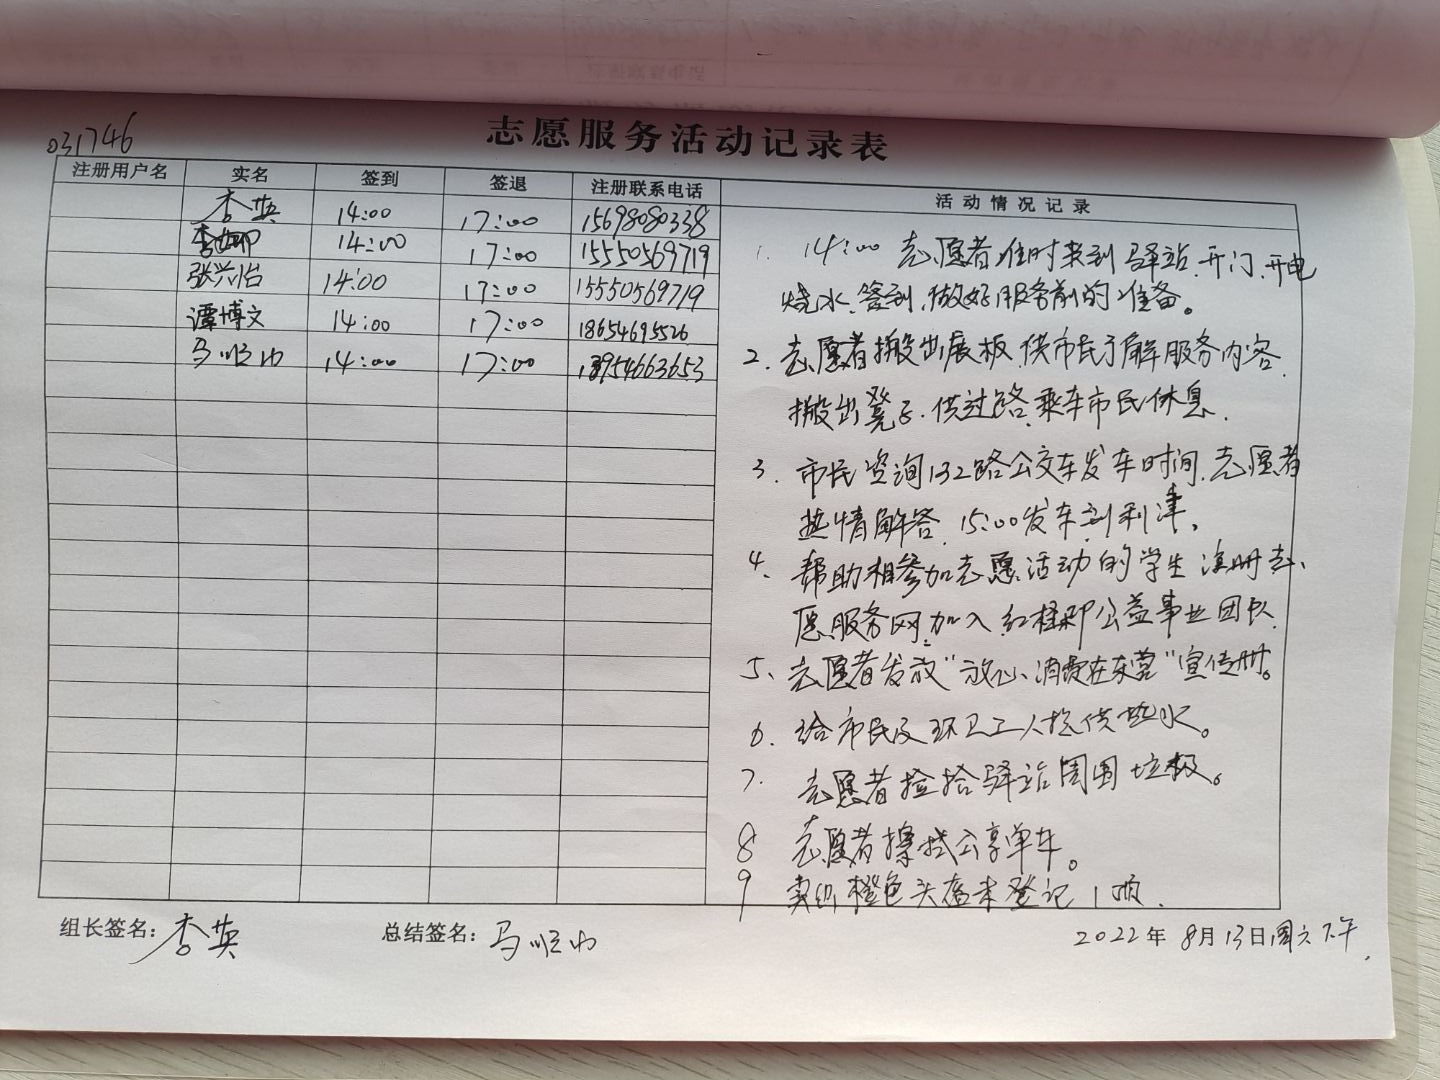 031746
志愿服务活动记录表
注册用户名 实名 签到 签退 注册联系电话 活动情况记录
李英 14:00 17:00 15698080338
李娜 14:00 17:00 15550569719
张兴怡 14:00 17:00 15550569719
谭博文 14:00 17:00 18654695526
马顺 14:00 17:00 13954663653
1. 14:00 志愿者准时来到驿站、开门、开电
烧水、签到、做好服务前的准备。
2. 志愿者搬出展板 供市民了解服务内容
搬出凳子、供过路、乘车市民休息.
3. 市民咨询132路公交车发车时间、志愿者
热情解答 15:00发车到利津。
4. 帮助想参加志愿活动的学生 注册志
愿服务网,加入 红柽柳公益事业团队
5、志愿者发放"放心消费在东营"宣传册。
6. 给市民及环卫工人提供热水。
7. 志愿者捡拾驿站周围垃圾。
8 志愿者擦拭公享单车。
9 橙色头盔未登记 1顶.
组长签名: 李英 总结签名: 马顺 2022年 8月13日周六下午